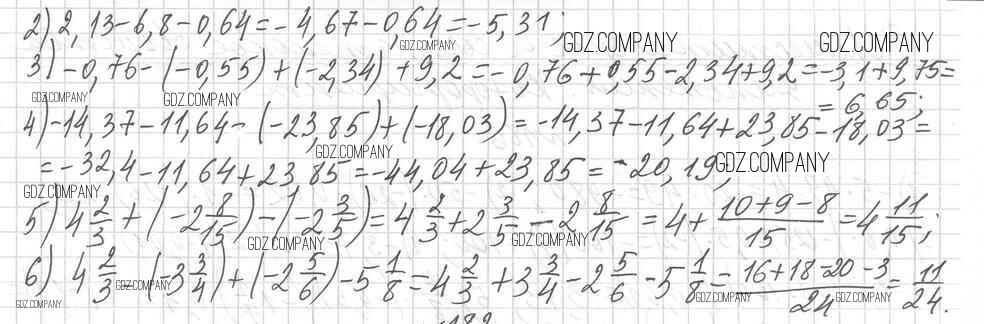 2) 2,13-6,8-0,64=-4,67-0,64=-5,31;
GDZ.COMPANY GDZ.COMPANY GDZ.COMPANY
3) -0,76-(-0,55)+(-2,34)+9,2=-0,76+0,55-2,34+9,2=-3,1+9,75=
GDZ.COMPANY GDZ.COMPANY
=6,65;
4) -14,37-11,64-(-23,85)+(-18,03)=-14,37-11,64+23,85-18,03=
GDZ.COMPANY
=-32,4-11,64+23,85=-44,04+23,85=-20,19;
GDZ.COMPANY
GDZ.COMPANY
5) 4 2/3+(-2 8/15)-(-2 3/5)=4 2/3+2 3/5-2 8/15=4+ (10+9-8)/15=4 11/15;
GDZ.COMPANY GDZ.COMPANY
6) 4 2/3-(-3 3/4)+(-2 5/6)-5 1/8=4 2/3+3 3/4-2 5/6-5 1/8= (16+18-20-3)/24= 11/24.
GDZ.COMPANY GDZ.COMPANY GDZ.COMPANY
GDZ.COMPANY